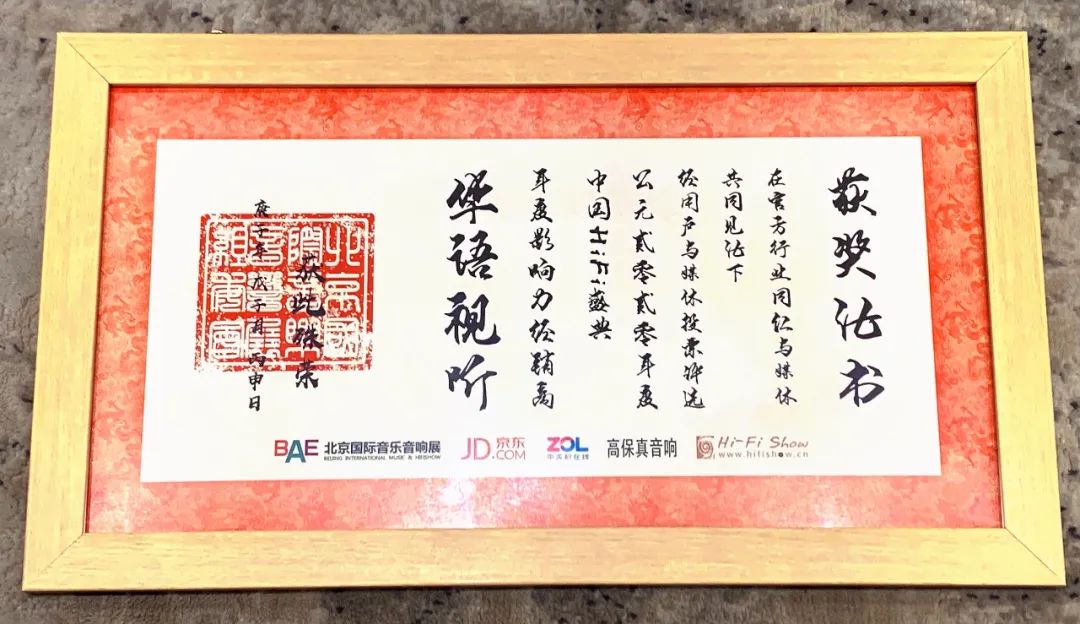 获奖证书
在官方行业同仁与媒体
共同见证下
经用户与媒体投票评选
公元贰零贰零年度
中国HiFi盛典
年度影响力经销商
华语视听
获此殊荣
庚子年 戊子月 丙申日
北京國際音樂音響展組委會
BAE 北京国际音乐音响展
BEIJING INTERNATIONAL MUSIC & HIFISHOW
JD.京东
.COM
ZOL
中关村在线
高保真音响
Hi-Fi Show
www.hifishow.cn